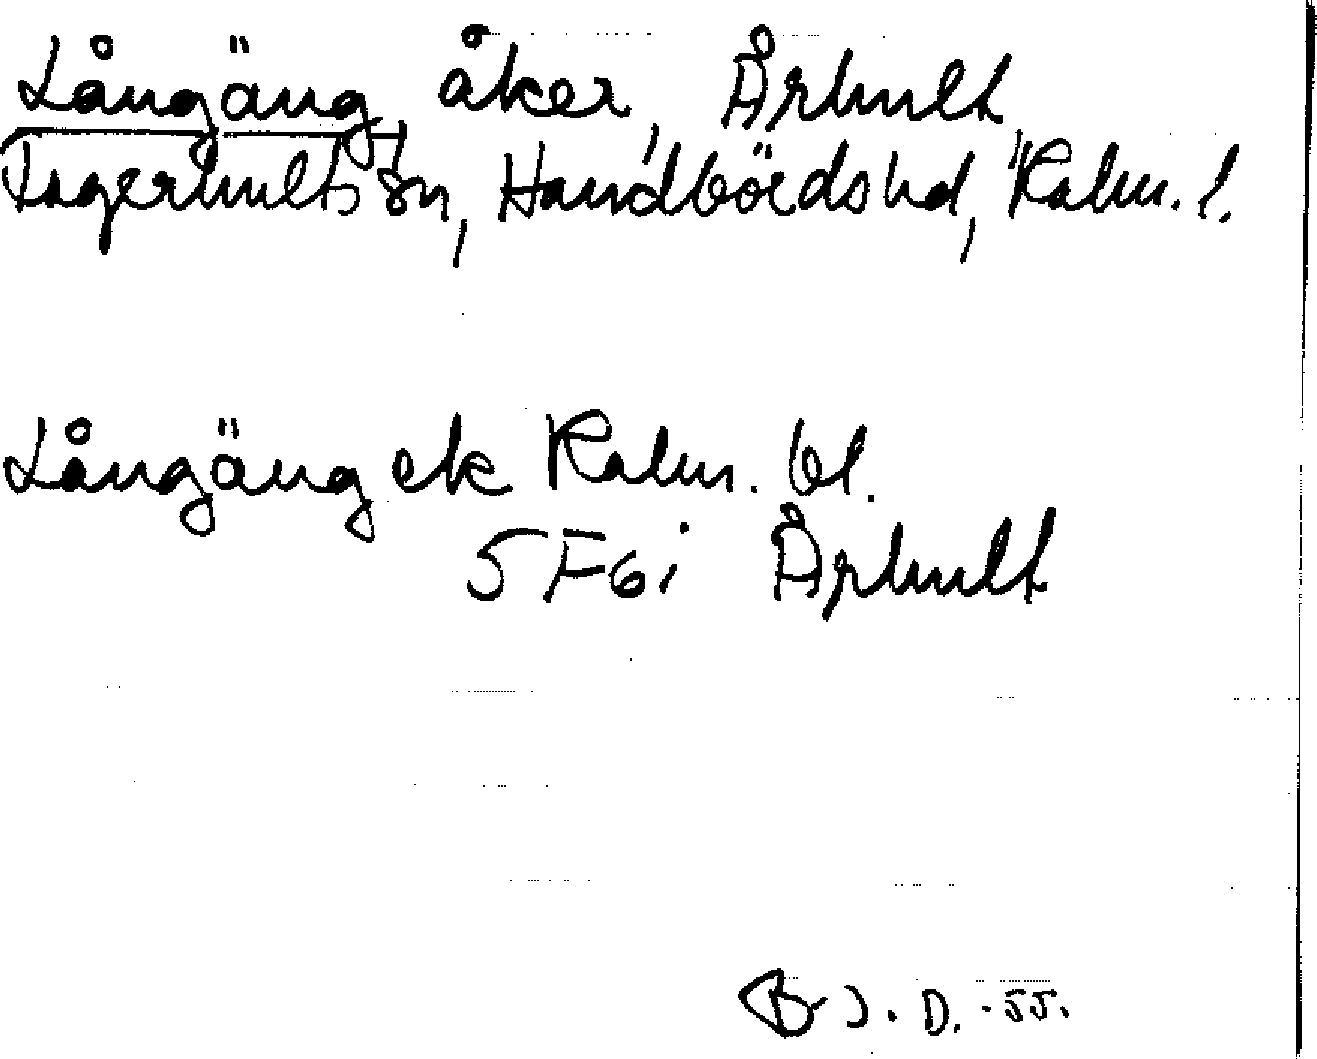 Långäng, åker, Århult,
Fagerhults sn, Handbörds hd, Kalm. l.
Långäng ek Kalm. bl.
5 F6i Århult
B. J. D. -55.